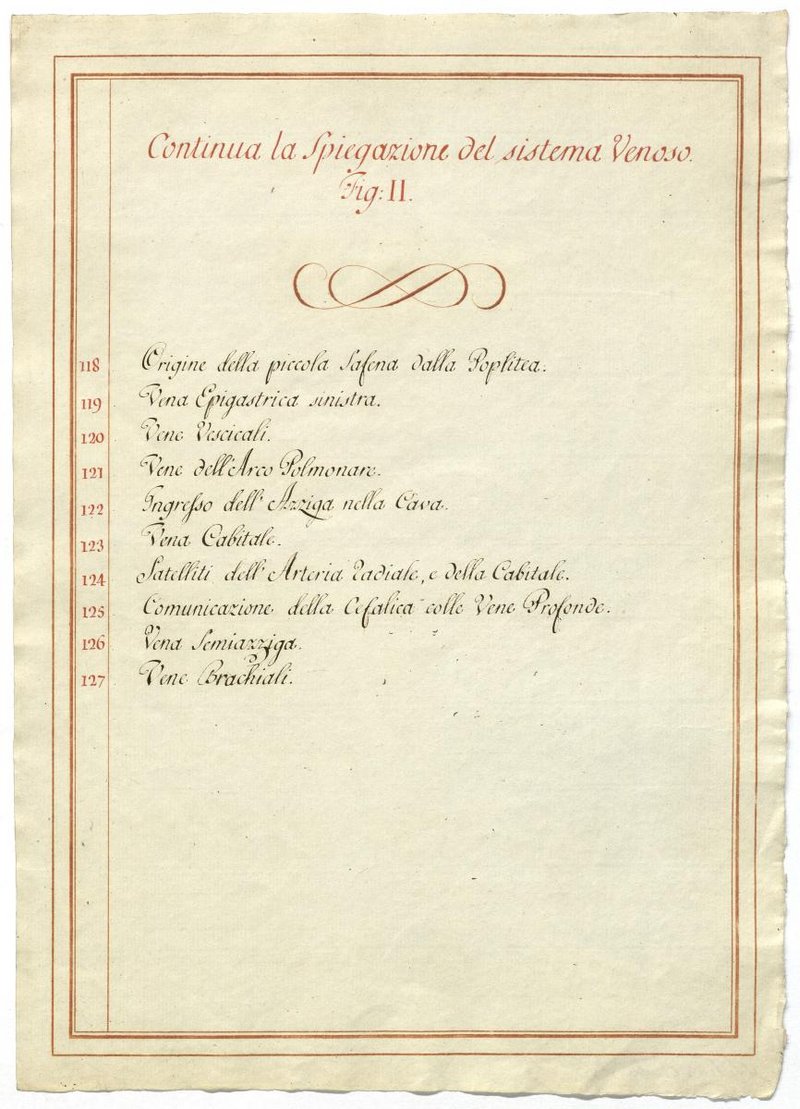 Continua la Spiegazione del sistema Venoso.
Fig: II.
118 Origine della piccola Safena dalla Poplitea.
119 Vena Epigastrica sinistra.
120 Vene Vescicali.
121 Vene dell'Arco Polmonare.
122 Ingresso dell'Azziga nella Cava.
123 Vena Cabitale.
124 Satelliti dell'Arteria Radiale, e della Cabitale.
125 Comunicazione della Cefalica colle Vene Profonde.
126 Vena Semiazziga.
127 Vene Brachiali.